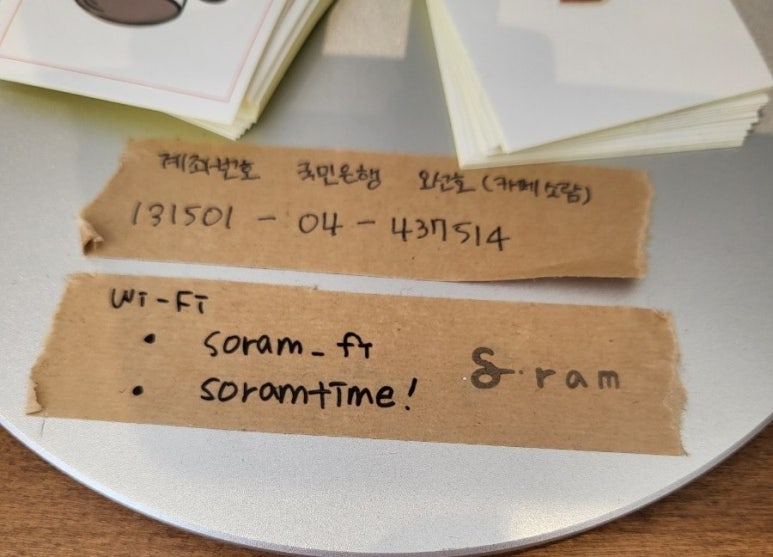 계좌번호 국민은행 오선호 (카페 소람)
131501 - 04 - 437514
Wi-Fi
• soram_fi
• soramtime!
S·ram